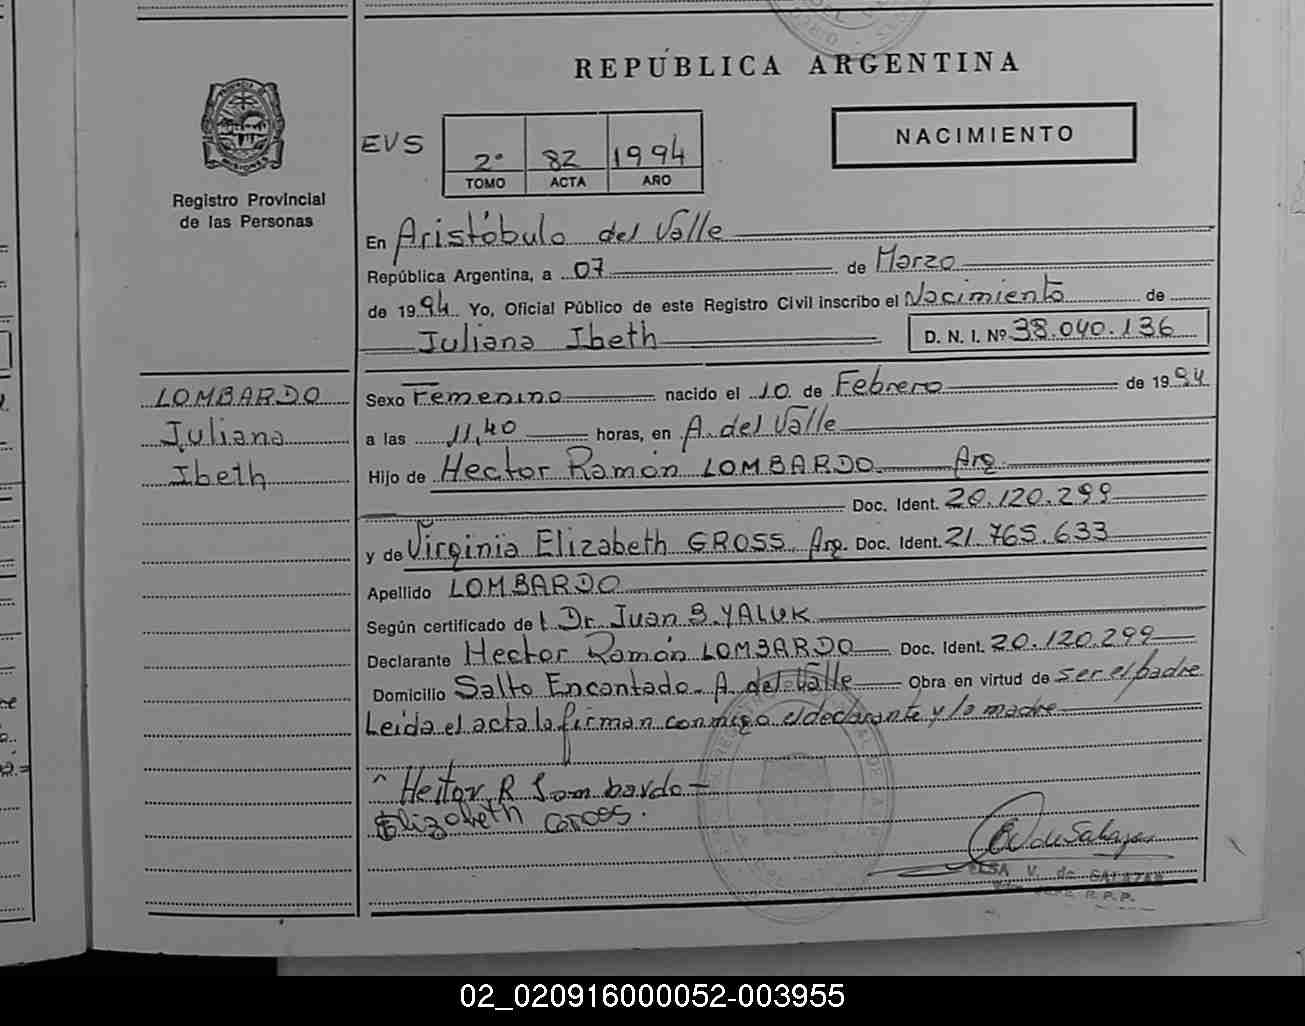 REPÚBLICA ARGENTINA
Registro Provincial
de las Personas
EVS
2º 82 1994
TOMO ACTA AÑO
NACIMIENTO
En Aristóbulo del Valle
República Argentina, a 07 de Marzo
de 1994 Yo, Oficial Público de este Registro Civil inscribo el Nacimiento de
Juliana Ibeth D. N. I. Nº 38.040.136
LOMBARDO
Juliana
Ibeth
Sexo Femenino nacido el 10 de Febrero de 1994
a las 11,40 horas, en A. del Valle
Hijo de Hector Ramón LOMBARDO Arg.
Doc. Ident. 20.120.299
y de Virginia Elizabeth GROSS Arg. Doc. Ident. 21.765.633
Apellido LOMBARDO
Según certificado de l Dr. Juan B. YALUK
Declarante Hector Ramón LOMBARDO Doc. Ident. 20.120.299
Domicilio Salto Encantado. A. del Valle Obra en virtud de ser el padre
Leida el acta la firman conmigo el declarante y la madre
Hector R Lombardo
Elizabeth Gross.
ELSA V. de SALAZAR
R.P.P.
02_020916000052-003955